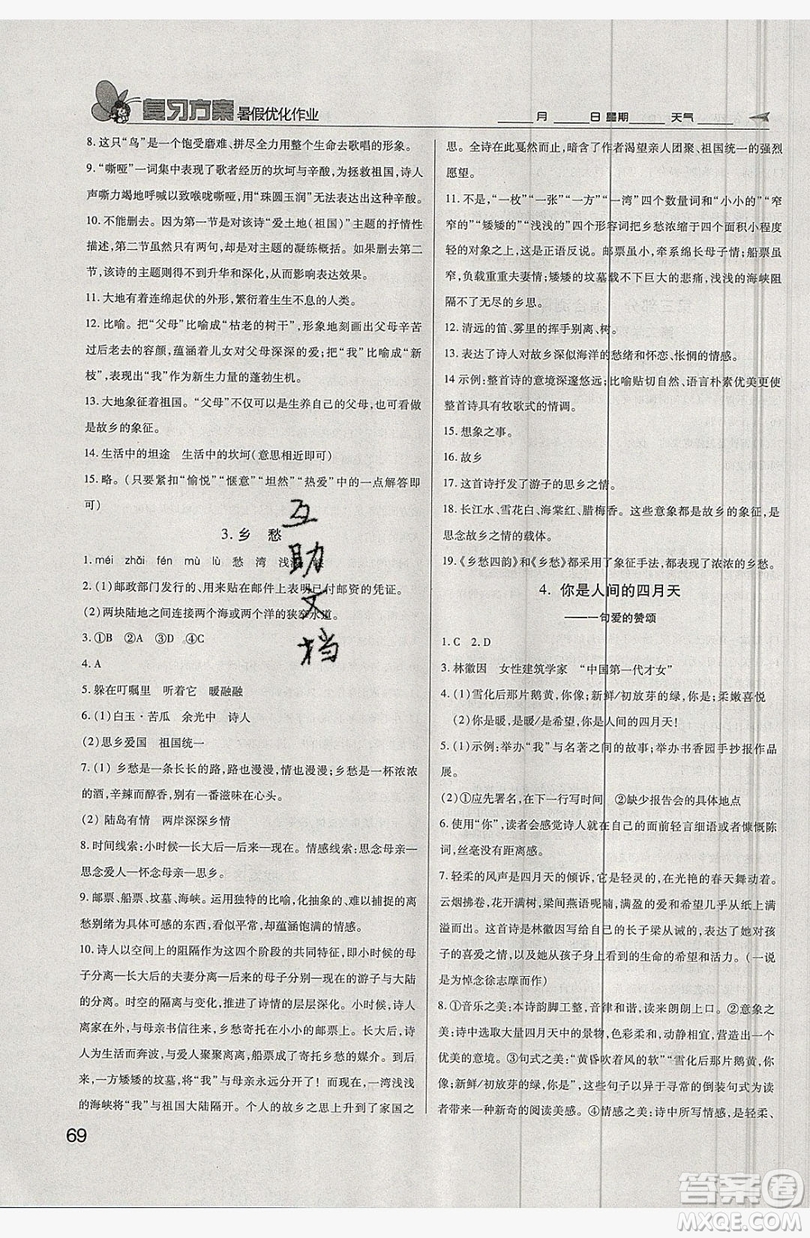 复习方案 暑假优化作业
月 日 星期 天气
8. 这只“鸟”是一个饱受磨难、拼尽全力用整个生命去歌唱的形象。
9. “嘶哑”一词集中表现了歌者经历的坎坷与辛酸，为拯救祖国，诗人
声嘶力竭地呼喊以致喉咙嘶哑，用“珠圆玉润”无法表达这种情感。
10. 不能删去。因为第一节是对该诗“爱土地（祖国）”主题的抒情性
描述，第二节虽然只有两句，却是对主题的凝练概括。如果删去第二
节，该诗的主题得不到升华和深化。
11. 大地有着连绵起伏的群山，繁衍着生生不息的人类。
12. 比喻。把“父母”比喻成“枯老的树干”，形象地刻画出父母付出
过后老去的容颜，蕴涵着儿女对父母深深的爱。把“我”比喻成“新
枝”，表现出“我”作为新生力量的蓬勃生机。
13. 大地象征着祖国。“父母”不仅可以是生养自己的父母，也可看做
是故乡的象征。
14. 生活中的坦途 生活中的坎坷（意思相近即可）
15. 略。（只要紧扣“愉悦”“惬意”“坦然”“热爱”中的一点解答即
可）
3. 乡 愁
1. méi zhǎi fén mù lù 愁 湾 浅
2. (1) 邮政部门发行的、用来贴在邮件上表明已付邮资的凭证。
(2) 两块陆地之间连接两个海或两个洋的狭窄水道。
3. ①B ②A ③C ④D
4. A
5. 躲在叮嘱里 听着它 暖融融
6. (1) 白玉·苦瓜 余光中 诗人
(2) 思乡爱国 祖国统一
7. (1) 乡愁是一条长长的路，路漫漫，情漫漫；乡愁是一杯浓浓
的酒，辛辣而醇香，久久地萦绕在心头。
(2) 陆岛有情 两岸深深乡情
8. 时间线索：小时候—长大后—后来—现在。情感线索：思念母亲—
思念爱人—怀念母亲—思乡。
9. 邮票、船票、坟墓、海峡。运用独特的比喻，化抽象的、难以捕捉的离
愁别绪为具体可感的东西，却蕴涵饱满的情感。
10. 诗人以空间上的阻隔作为这四个阶段的共同特征，即小时候的母
子分离—长大后的夫妻分离—后来的母子死别—现在的游子与大陆
的分离。时空的隔离与变化，推进了诗情的层层深化。小时候，诗人
离家，与母亲书信往来，乡愁寄托在小小的邮票上。长大后，诗人为
生活而奔波，与爱人聚聚离离，船票成了寄托乡愁的媒介。到后来，
一方矮矮的坟墓，将“我”与母亲永远分开！而现在，一湾浅浅
的海峡将“我”与祖国大陆隔开。个人的故乡之思上升到了家国之
思。全诗在此戛然而止，含蓄地指出了作者渴望亲人团聚、祖国统一的强烈
愿望。
11. 不是，“一枚”“一张”“一方”“一湾”四个数量词和“小小的”“窄
窄的”“矮矮的”“浅浅的”四个形容词，把乡愁浓缩于面积小程度
轻的对象之上，这是正语反说。邮票虽小，牵系绵长母子情；船票虽
窄，负载重重夫妻情；矮矮的坟墓载不下巨大的悲伤，浅浅的海峡阻
隔不了无尽的乡思。
12. 清远的笛、雾里的挥手别离、树。
13. 表达了诗人对故乡深似海洋的愁绪和怀恋、怅惘的情感。
14 示例：整首诗的意境深邃悠远；比喻贴切自然、语言朴素优美使得
整首诗具有牧歌式的情调。
15. 想象之事。
16. 故乡
17. 这首诗抒发了游子的思乡之情。
18. 长江水、雪花白、海棠红、腊梅香。这些意象是故乡的象征，是诗人
思念故乡之情的载体。
19. 《乡愁四韵》和《乡愁》都采用了象征手法，都表现了浓浓的乡愁。
4. 你是人间的四月天
——一句爱的赞颂
1. C 2. D
3. 林徽因 女性建筑学家 “中国第一代才女”
4. (1) 雪化后那片鹅黄，你像；新鲜/初放芽的绿，你是；柔嫩喜悦
(2) 你是暖，是希望，你是人间的四月天！
5. (1) 示例：举办“我”与名著的故事；举办书香园手抄报作品
展。
(2) ①应先署名，在下一行写时间 ②缺少报告会的具体地点
6. 使用“你”，读者会感觉诗人就在自己的面前轻言细语或者慷慨陈
词，丝毫没有距离感。
7. 轻柔的风声是四月天的倾诉，它是轻灵的，在光艳的春天舞动着。
云烟拂卷，花开满树，梁间燕语呢喃，满盈的爱和希望好像快要满
溢而出了。在这首诗里林徽因写出自己初为人母的喜悦，表达了她对孩
子的喜爱之情，以及她从孩子身上看到的生命的活力和希望。（一说
是为悼念徐志摩而作）
8. ①音乐之美：本诗韵脚工整，音律和谐，读来朗朗上口。②意象之
美：诗中选取大量四月天中的景物，色彩柔和，动静相宜，营造出一个
优美的意境。③句式之美：“黄昏吹着风的软”“雪化后那片鹅黄，你
像；新鲜/初放芽的绿，你是”等一系列的倒装句式的运用，使诗歌在读
者带来一种新奇的阅读美感。④情感之美：诗中抒写的情感，是轻柔、
69
互助文档
答案圈
MXQE.COM